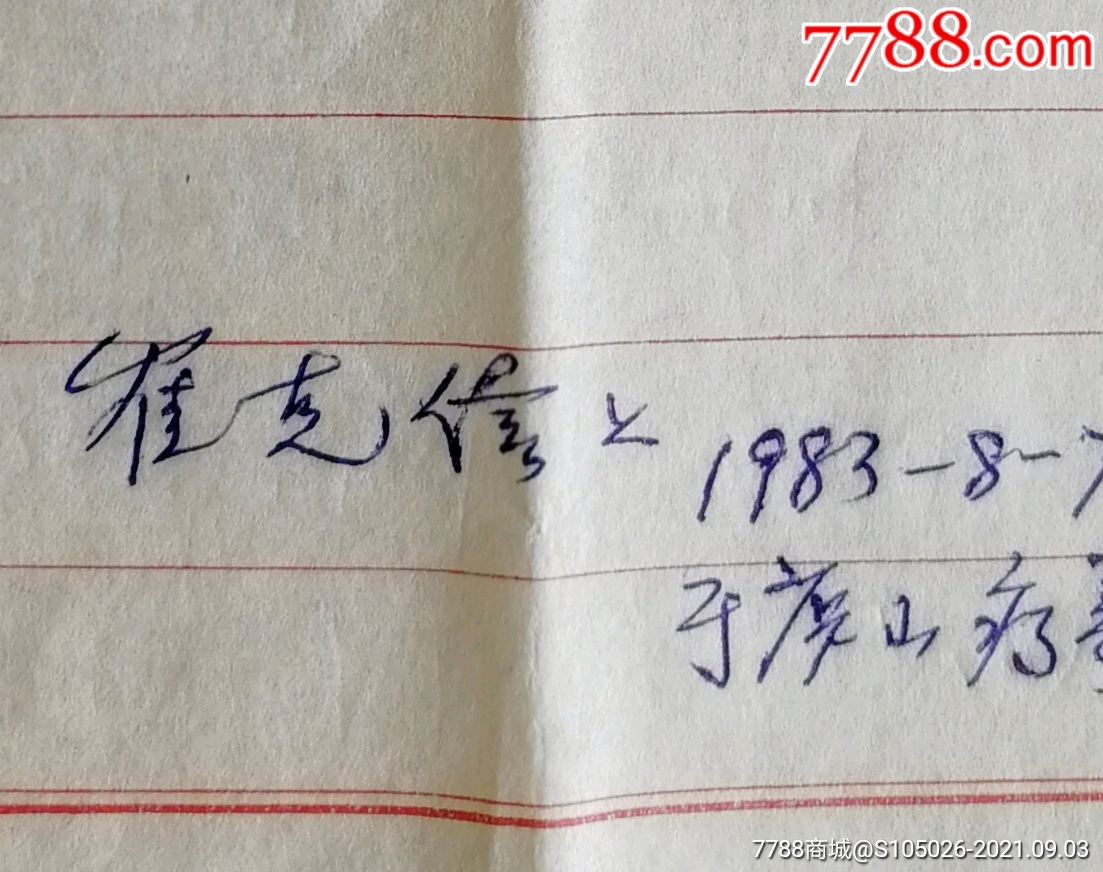 7788.com
崔克信上 1983-8-7
于庐山疗养
7788商城@S105026-2021.09.03